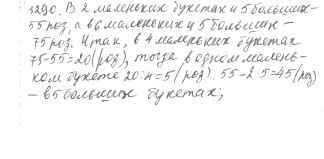 1290. В 2 маленьких букетах и 5 больших-
55 роз, а в 6 маленьких и 5 больших -
75 роз. Итак, в 4 маленьких букетах
75-55=20 (роз), тогда в одном малень-
ком букете 20:4=5 (роз). 55-2·5=45 (роз)
- в 5 больших букетах;